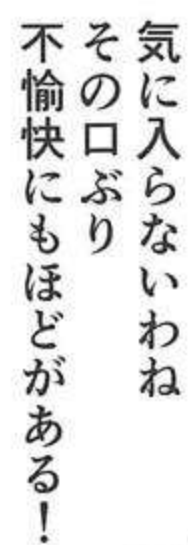 気に入らないわね
その口ぶり
不愉快にもほどがある！